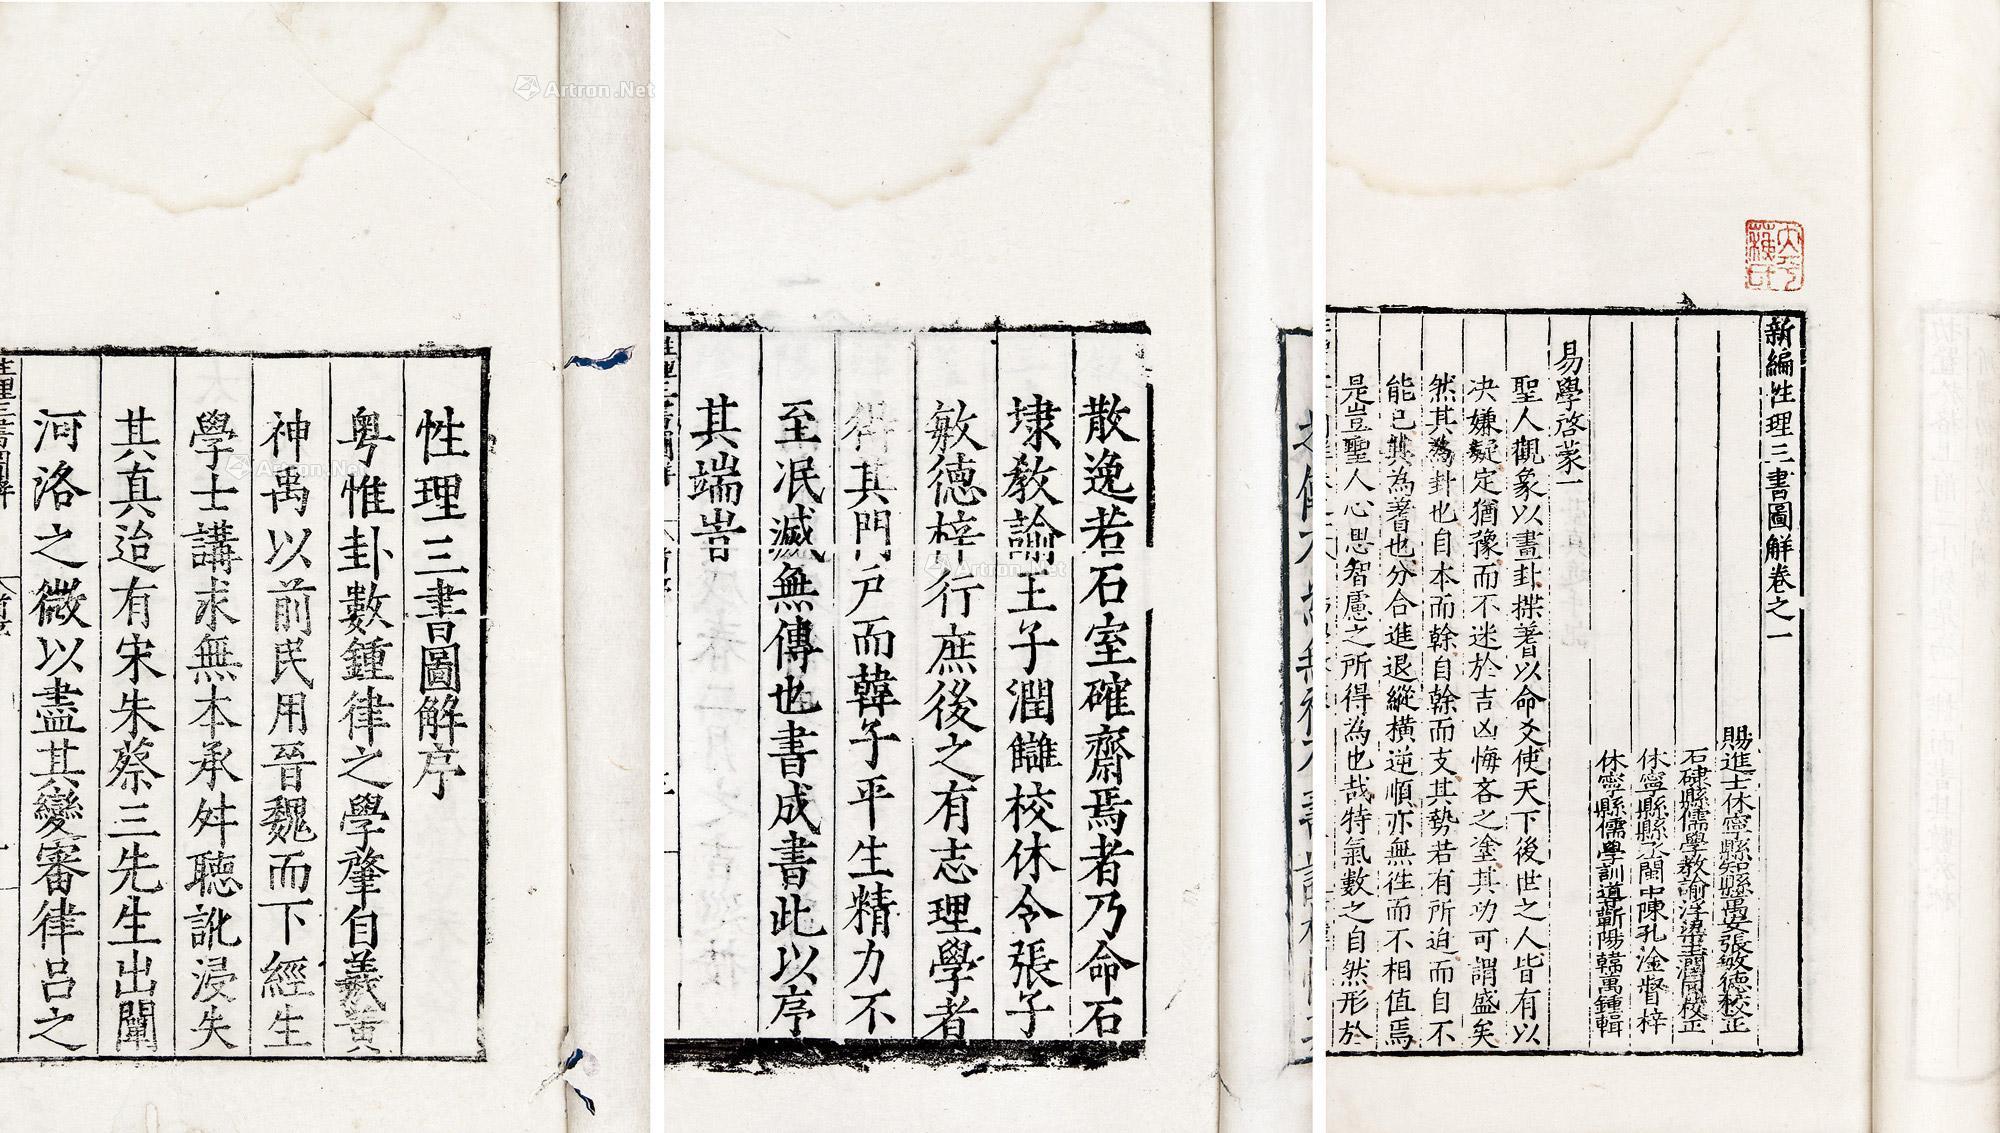 性理三書圖解序
粤惟卦數鍾律之學肇自羲黄
神禹以前民用晉魏而下經生
學士講求無本承舛聽訛浸失
其真迨有宋朱蔡三先生出闡
河洛之微以盡其變審律呂之
散逸若石室確齋焉者乃命石
埭教諭王子潤讎校休令張子
敏德梓行庶後之有志理學者
得其門戶而韓子平生精力不
至泯滅無傳也書成書此以序
其端耑
新編性理三書圖解卷之一
賜進士休寧縣知縣 張敏德校正
石埭縣儒學教諭浮梁王潤同校正
休寧縣縣丞閩中陳孔淦督梓
休寧縣儒學訓道蘄陽韓萬鍾輯
易學啓蒙一
聖人觀象以畫卦揲蓍以命爻使天下後世之人皆有以
决嫌疑定猶豫而不迷於吉凶悔吝之塗其功可謂盛矣
然其為卦也自本而榦自榦而支其勢若有所迫而自不
能已其為蓍也分合進退縱橫逆順亦無徃而不相值焉
是豈聖人心思智慮之所得為也哉特氣數之自然形於
Artron.Net
Artron.Net
Artron.Net